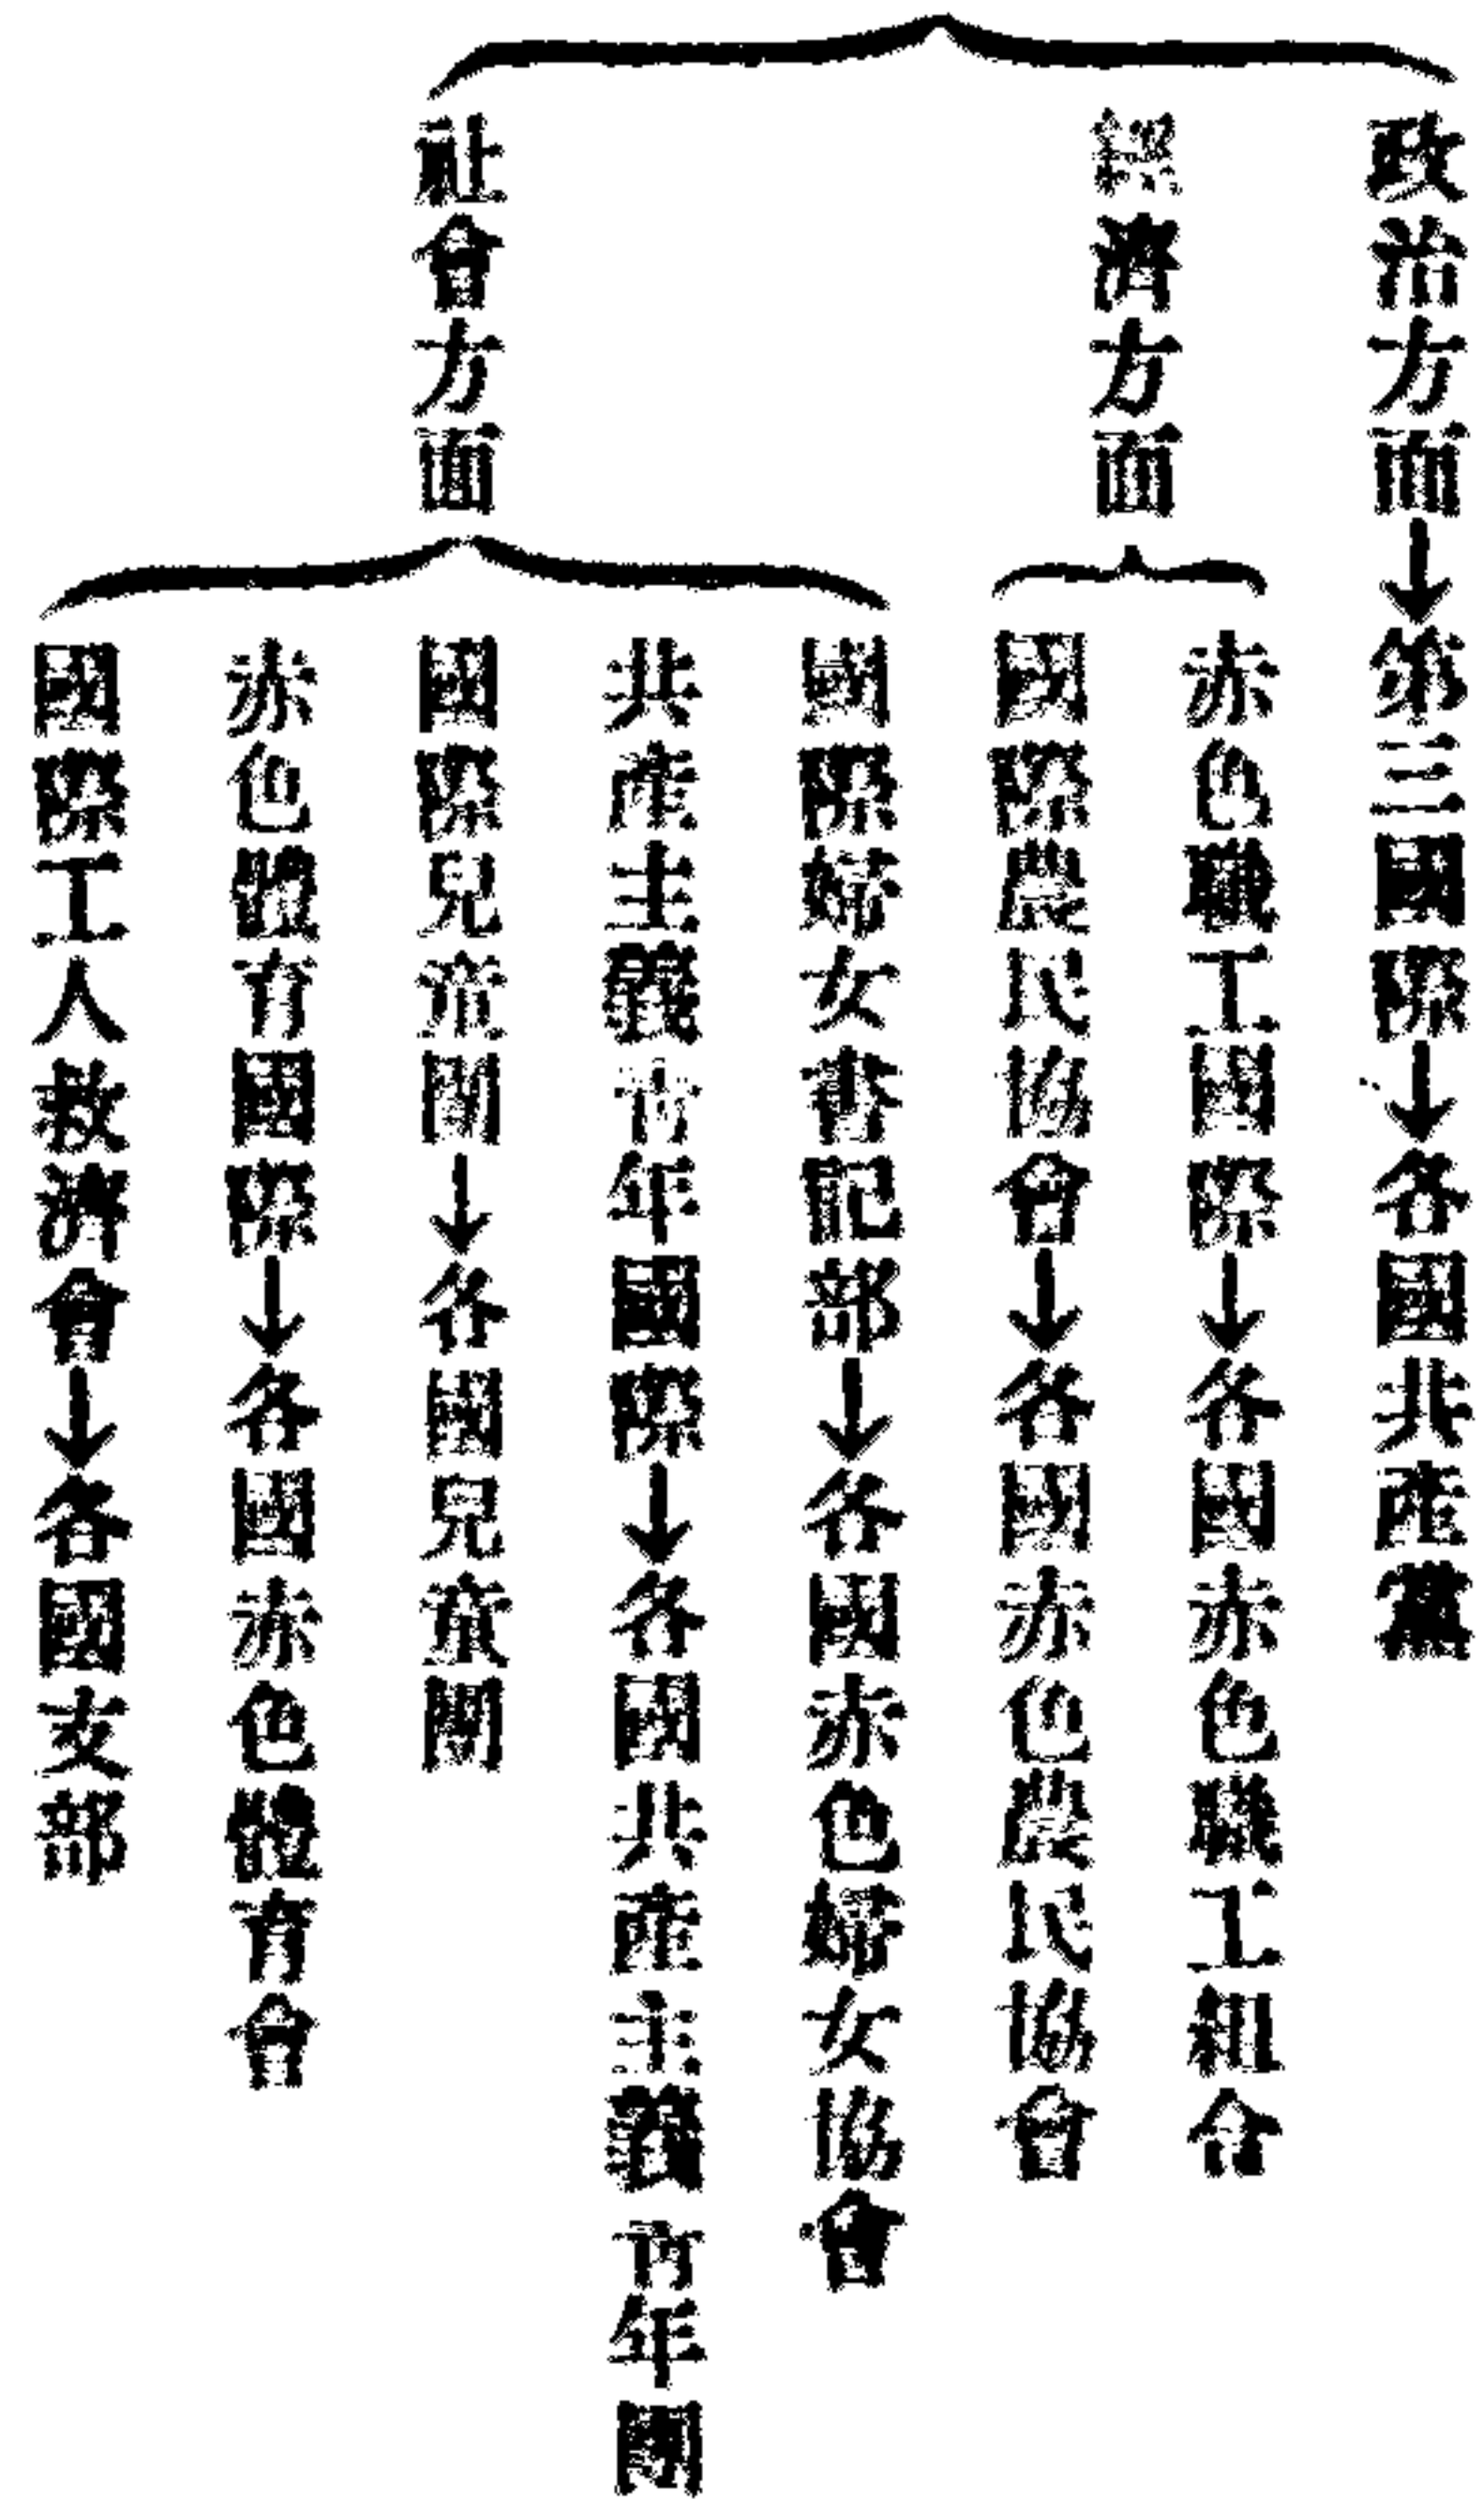 政治方面→第三國際→各國共產黨
經濟方面
赤色職工國際→各國赤色職工組合
國際農民協會→各國赤色農民協會
社會方面
國際婦女書記部→各國赤色婦女協會
共產主義青年國際→各國共產主義青年團
國際兒童團→各國兒童團
赤色體育國際→各國赤色體育會
國際工人救濟會→各國支部